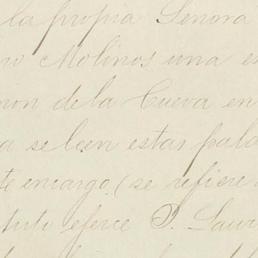 la propia Senora
Molinos una
de la Cueva en
a se leen estas pala
te encargo (se refiere
ejerce P. Laur